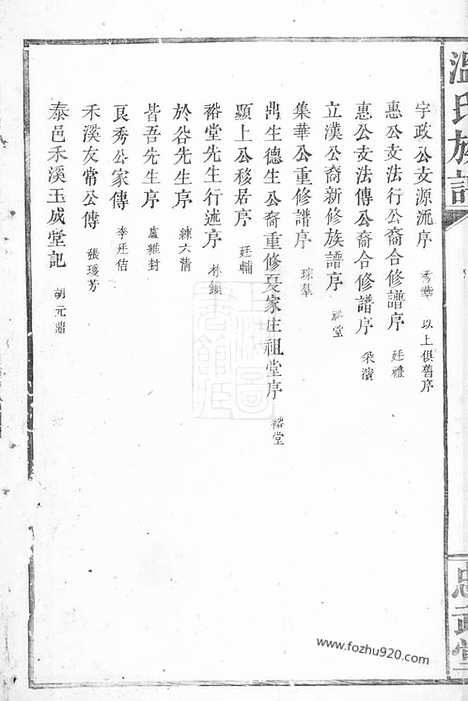 溫氏族譜
忠武堂
宇政公支源流序 秀華 以上俱舊序
惠公支法行公裔合修譜序 廷禮
惠公支法傳公裔合修譜序 榮濱
立漢公裔新修族譜序 裕堂
集華公重修譜序 琮華
鼎生德生公裔重修夏家庄祖堂序 裕堂
顯上公移居序 廷輔
裕堂先生行述序 林鎖
於谷先生序 練六蒨
皆吾先生序 盧雞封
艮秀公家傳 李廷佶
禾溪友常公傳 張瓊芳
泰邑禾溪玉成堂記 胡元瀞
www.fozhu920.com